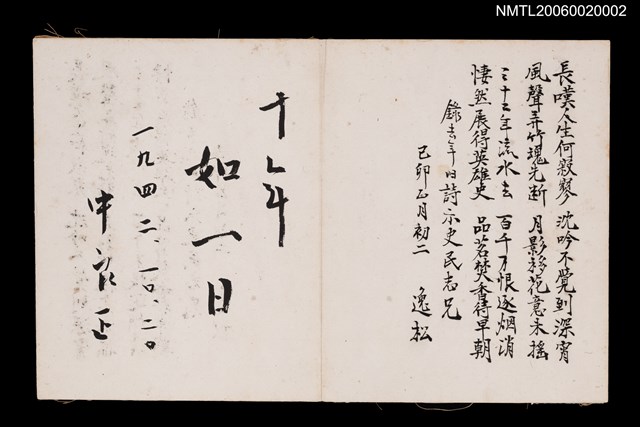 NMTL20060020002
長嘆人生何寂寥 沈吟不覺到深宵
風聲弄竹魂先斷 月影移花意未搖
三十三年流水去 百千万恨逐烟消
悽然展得英雄史 品茗焚香待早朝
錄去年旧詩示史民志兄
己卯正月初二 逸松
十年
如一日
一九四二、一〇、二〇